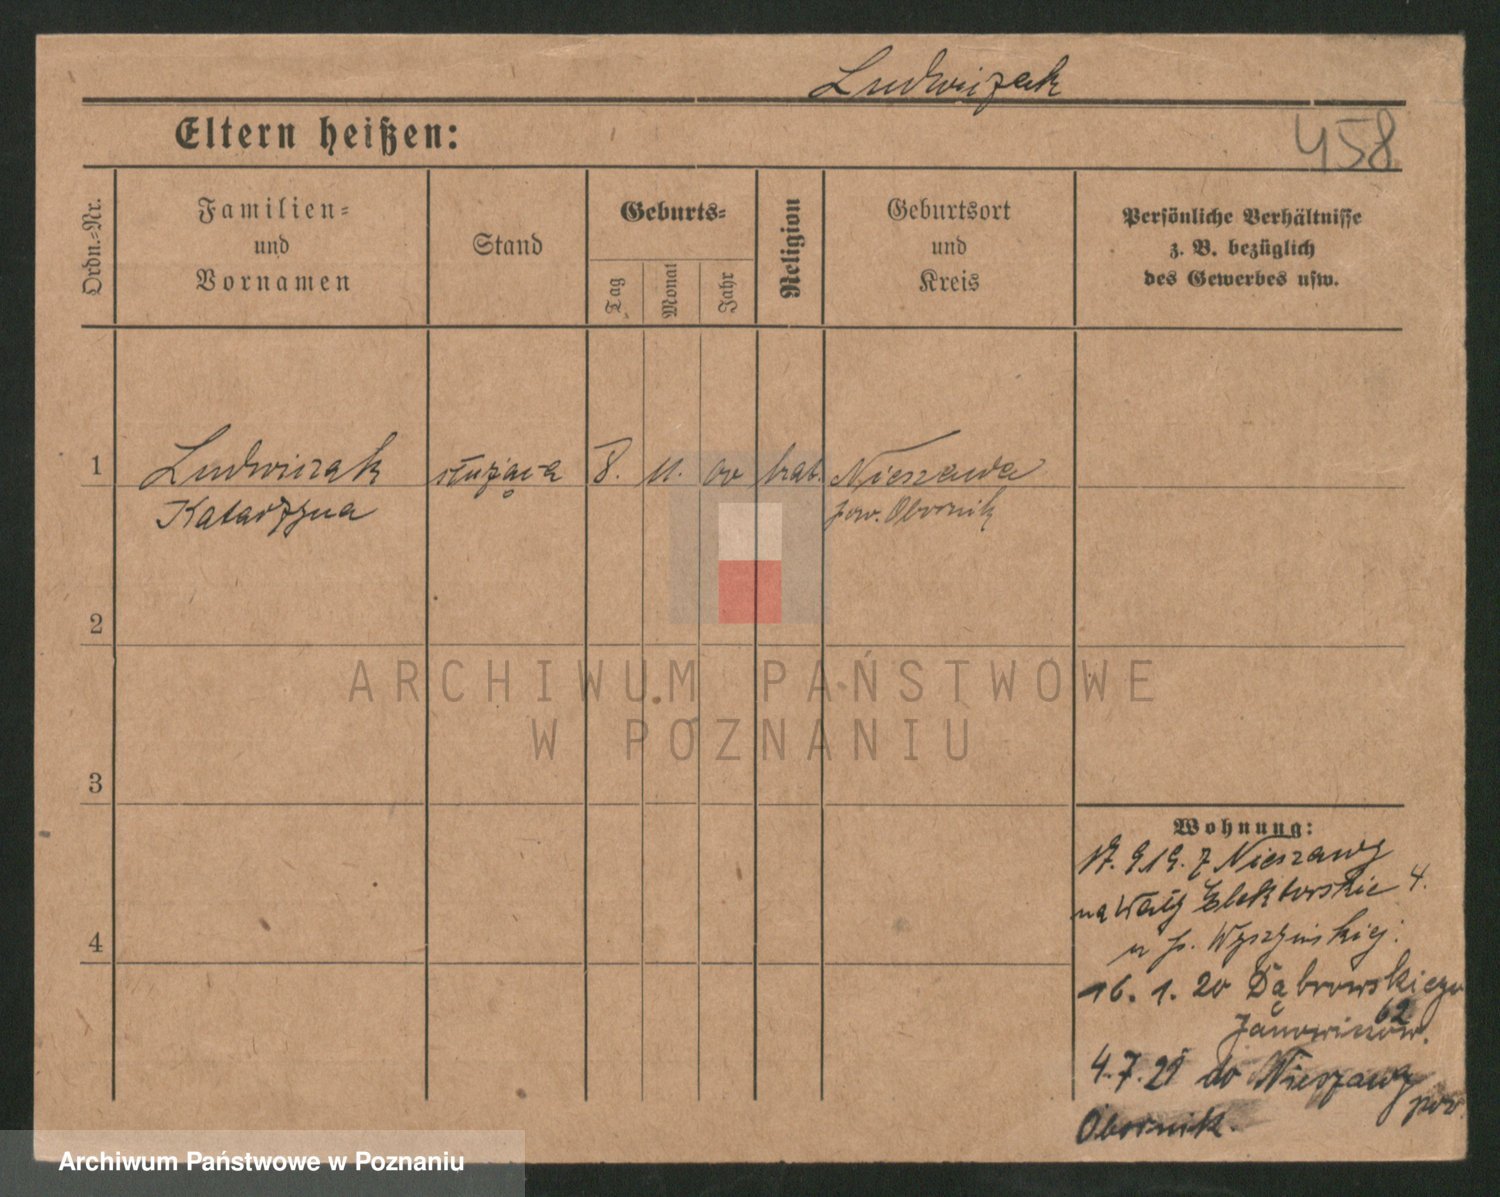 Ludwiczak
458
Eltern heißen:
Ordn.-Nr.
Familien-
und
Vornamen
Stand
Geburts-
Tag
Monat
Jahr
Religion
Geburtsort
und
Kreis
Persönliche Verhältnisse
z. B. bezüglich
des Gewerbes usw.
1 Ludwiczak służąca 8. 11. 00 kat. Nieszawa
Katarzyna pow. Obornik
2
3
4
Wohnung:
17. 9 19. z Nieszawy
na Wały Elektorskie 4.
u p. Wyszyńskiej.
16. 1. 20 Dąbrowskiego
62
Janowiczów.
4. 7. 21 do Nieszawy
pow.
Obornik.
ARCHIWUM PAŃSTWOWE
W POZNANIU
Archiwum Państwowe w Poznaniu